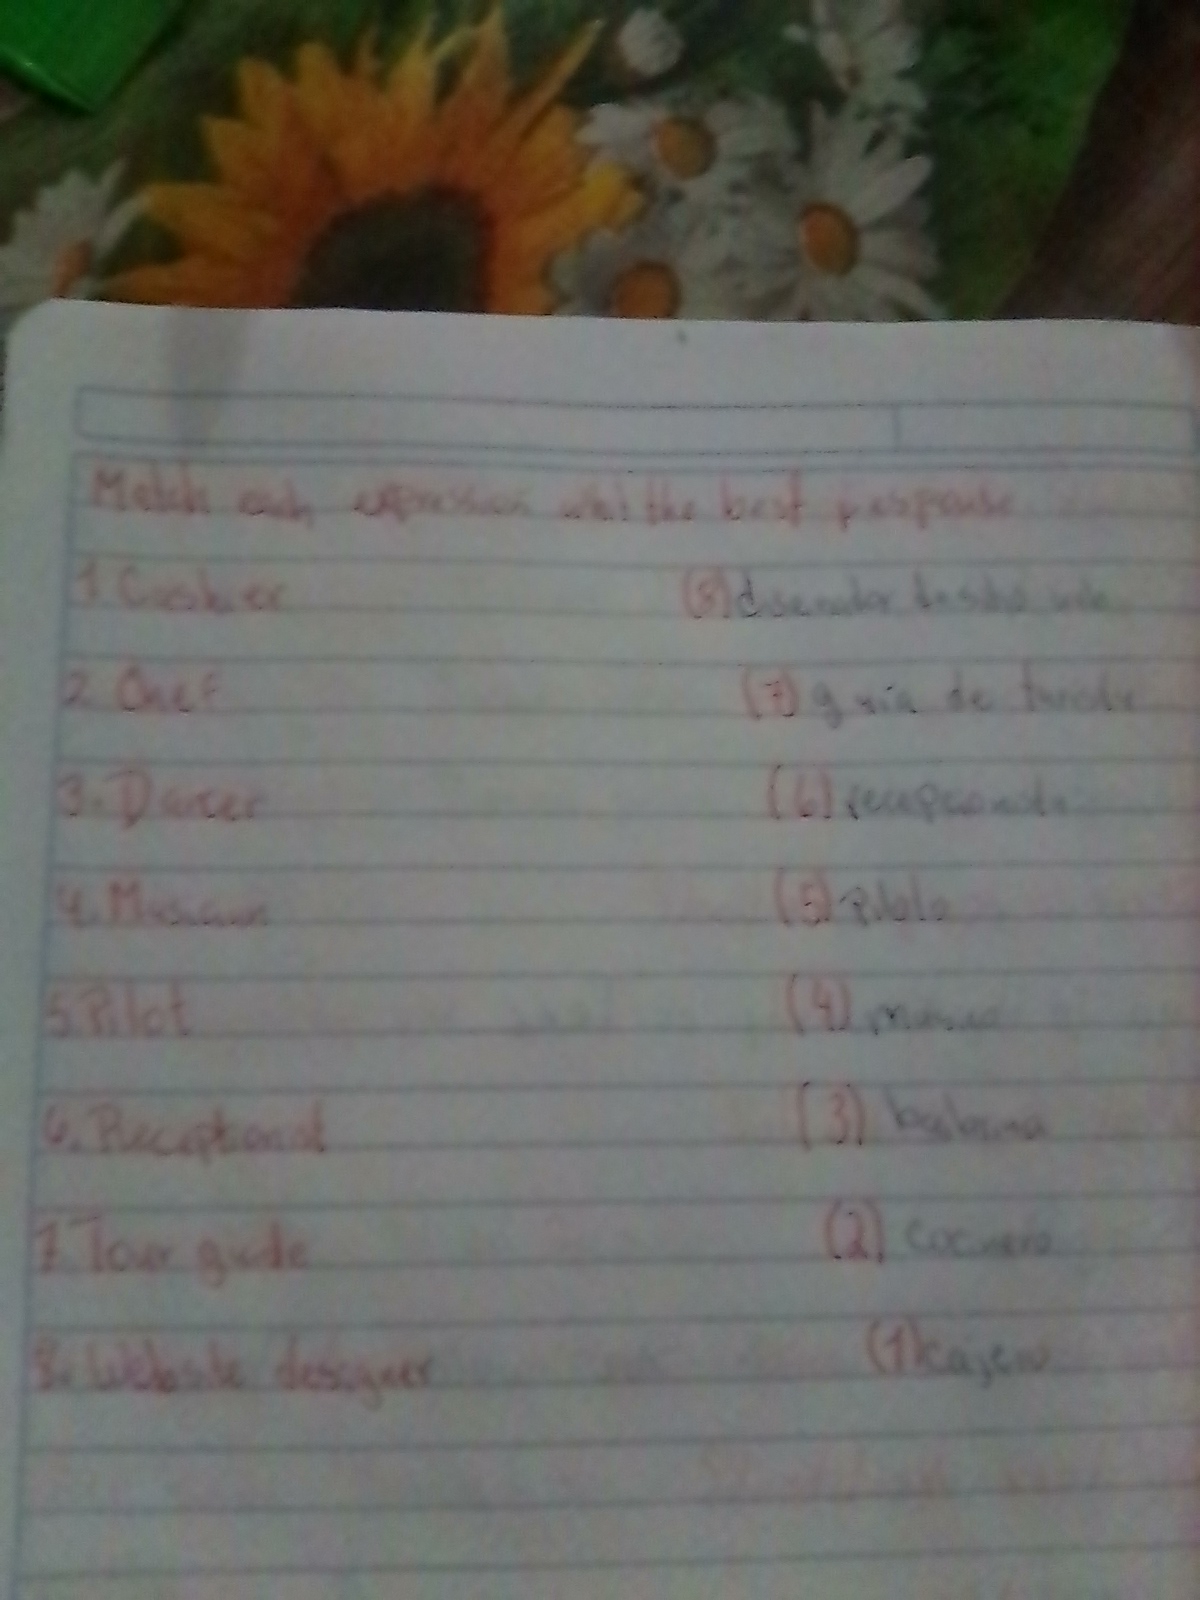 Match each expression whit the best response
1. Cashier (8) disenador de sitio web
2. Chef (7) guia de turista
3. Dancer (6) recepcionista
4. Musician (5) Piloto
5. Pilot (4) musico
6. Receptionist (3) bailarina
7. Tour guide (2) cocinero
8. Website designer (1) cajero